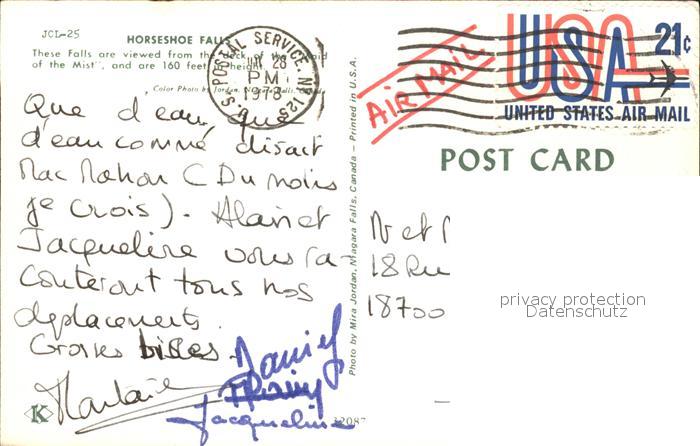 JCL-25
HORSESHOE FALLS
These Falls are viewed from the deck of the "Maid
of the Mist", and are 160 feet in height.
Color Photo by Jordan, Niagara Falls,
U.S. POSTAL SERVICE, NY 125
28
PM
1978
AIR MAIL
USA 21c
UNITED STATES AIR MAIL
POST CARD
Que d'eau, que
d'eau comme disait
Mac Mahon (Du moins
je crois). Alain et
Jacqueline vous ra-
conteront tous nos
déplacements.
Grosses bises.
Daniel
Thierry
Jacqueline
K
12087
Photo by Mira Jordan, Niagara Falls, Canada — Printed in U.S.A.
M et
18 Ru
18700
privacy protection
Datenschutz